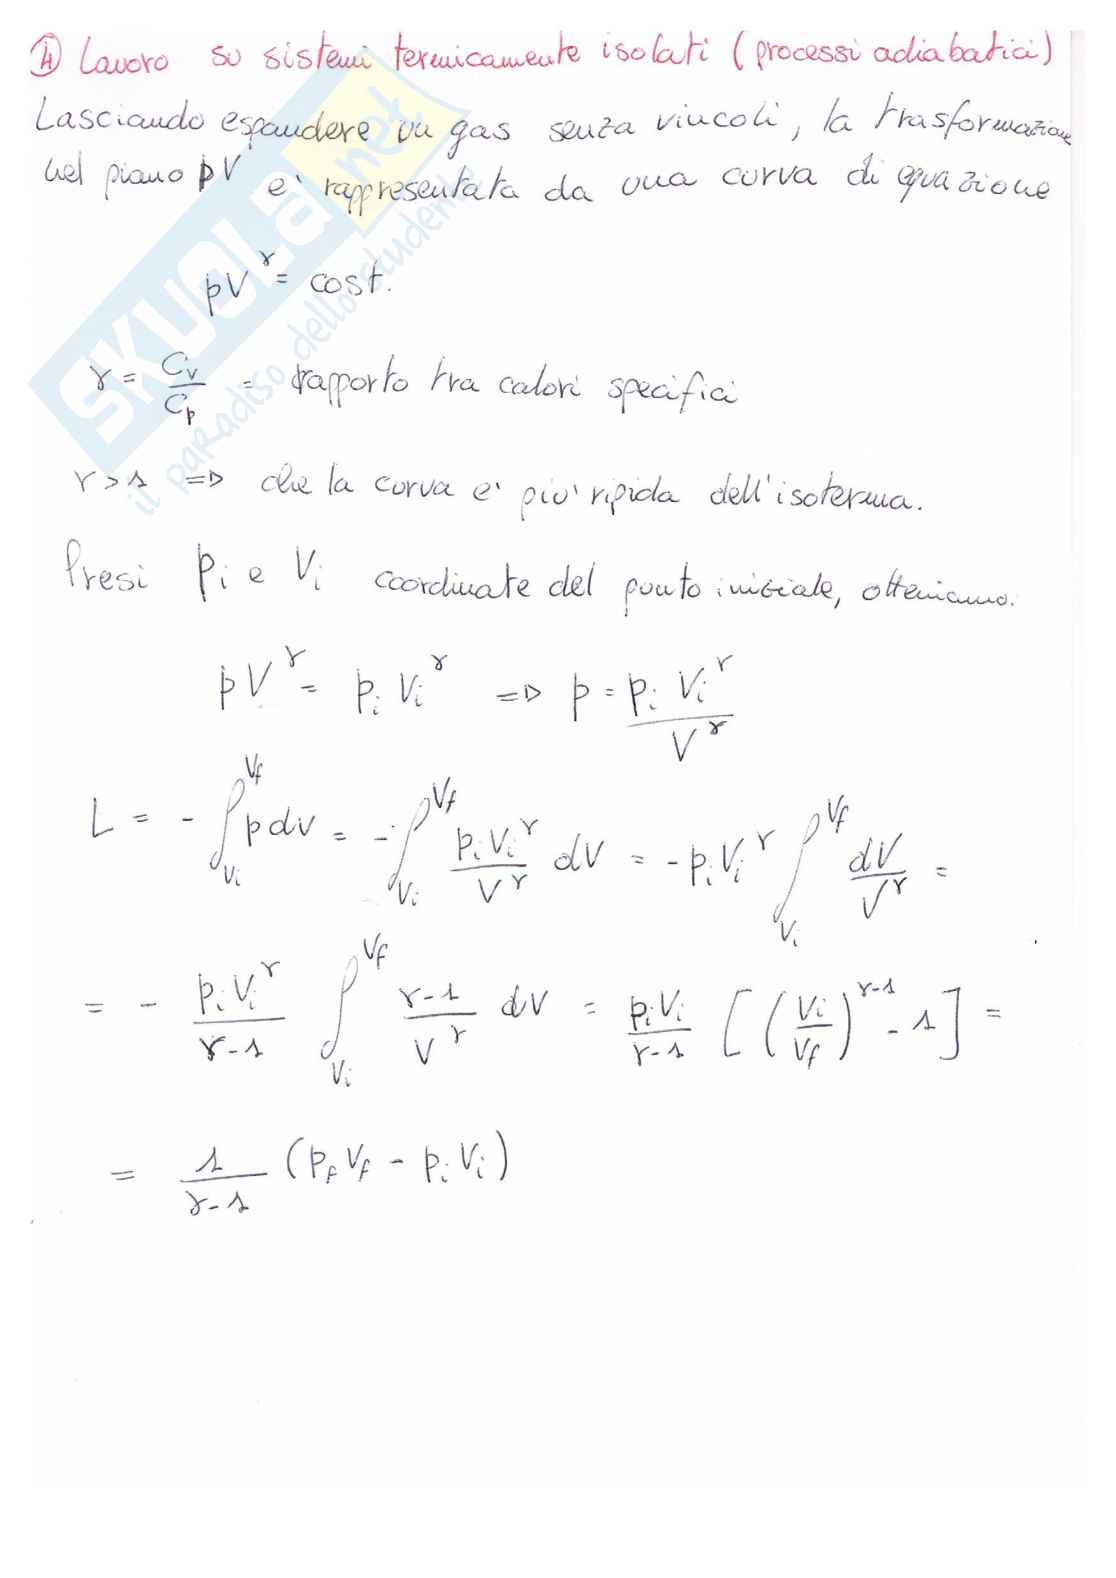 ④ Lavoro su sistemi termicamente isolati (processi adiabatici)
Lasciando espandere un gas senza vincoli, la trasformazione
nel piano pV e' rappresentata da una curva di equazione
pV^γ = cost.
γ = C_v / C_p = rapporto tra calori specifici
γ > 1 => che la curva e' piu' ripida dell'isoterma.
Presi p_i e V_i coordinate del punto iniziale, otteniamo:
pV^γ = p_i V_i^γ => p = p_i V_i^γ / V^γ
L = - ∫_{V_i}^{V_f} p dV = - ∫_{V_i}^{V_f} p_i V_i^γ / V^γ dV = - p_i V_i^γ ∫_{V_i}^{V_f} dV / V^γ =
= - p_i V_i^γ / γ-1 ∫_{V_i}^{V_f} γ-1 / V^γ dV = p_i V_i / γ-1 [ ( V_i / V_f )^{γ-1} - 1 ] =
= 1 / γ-1 ( p_f V_f - p_i V_i )
SKUOLA.net
il paradiso dello studente